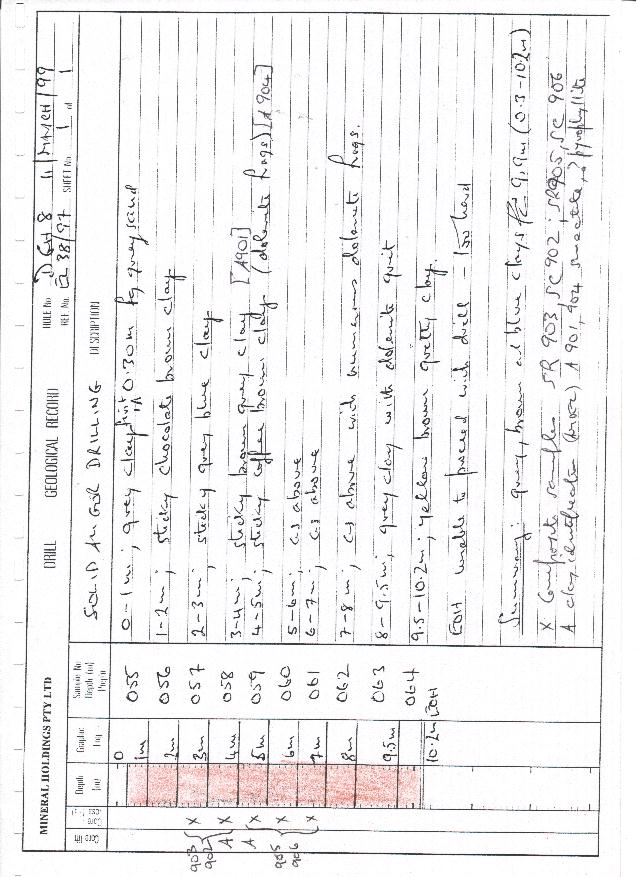 MINERAL HOLDINGS PTY LTD
DRILL GEOLOGICAL RECORD
HOLE No DGH 8 11/MARCH/99
REF. No. EL 38/97 SHEET No. 1 of 1
Core lift
Core Loss
Depth (m)
Graphic Log
Sample No
Depth (m)
DESCRIPTION
SOLID AUGER DRILLING
0
1m 055 0-1m; grey clay, first 0.30m fg grey sand
2m 056 1-2m; sticky chocolate brown clay
903 902 X 3m 057 2-3m; sticky grey blue clay
A X 4m 058 3-4m; sticky brown grey clay [A901]
A X 5m 059 4-5m; sticky coffee brown clay (dolerite frags) [A904]
905 906 X 6m 060 5-6m; as above
X 7m 061 6-7m; as above
8m 062 7-8m; as above with numerous dolerite frags.
9.5m 063 8-9.5m; grey clay with dolerite grit
10.2m EOH 064 9.5-10.2m; yellow brown gritty clay.
EOH unable to proceed with drill - too hard
Summary: grey, brown and blue clays 9.9m (0.3-10.2m)
X Composite samples SR 903, SC 902; SR905, SC 906
A clay identification A 901, 904 smectite, ? pyrophyllite